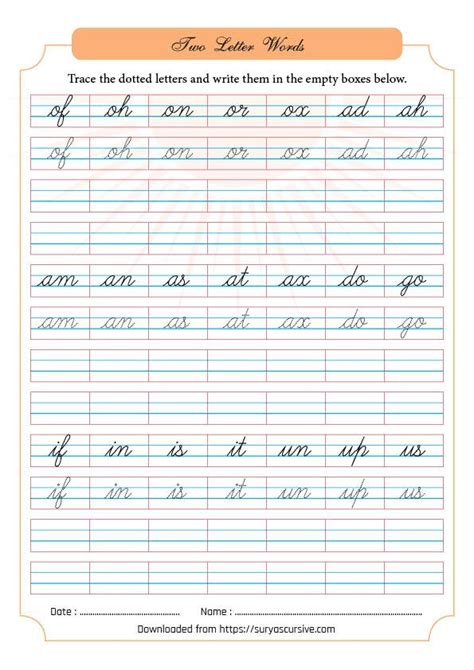 Two Letter Words
Trace the dotted letters and write them in the empty boxes below.
of oh on or ox ad ah
of oh on or ox ad ah
am an as at ax do go
am an as at ax do go
if in is it un up us
if in is it un up us
Date : ............................................ Name : ............................................................................
Downloaded from https://suryascursive.com